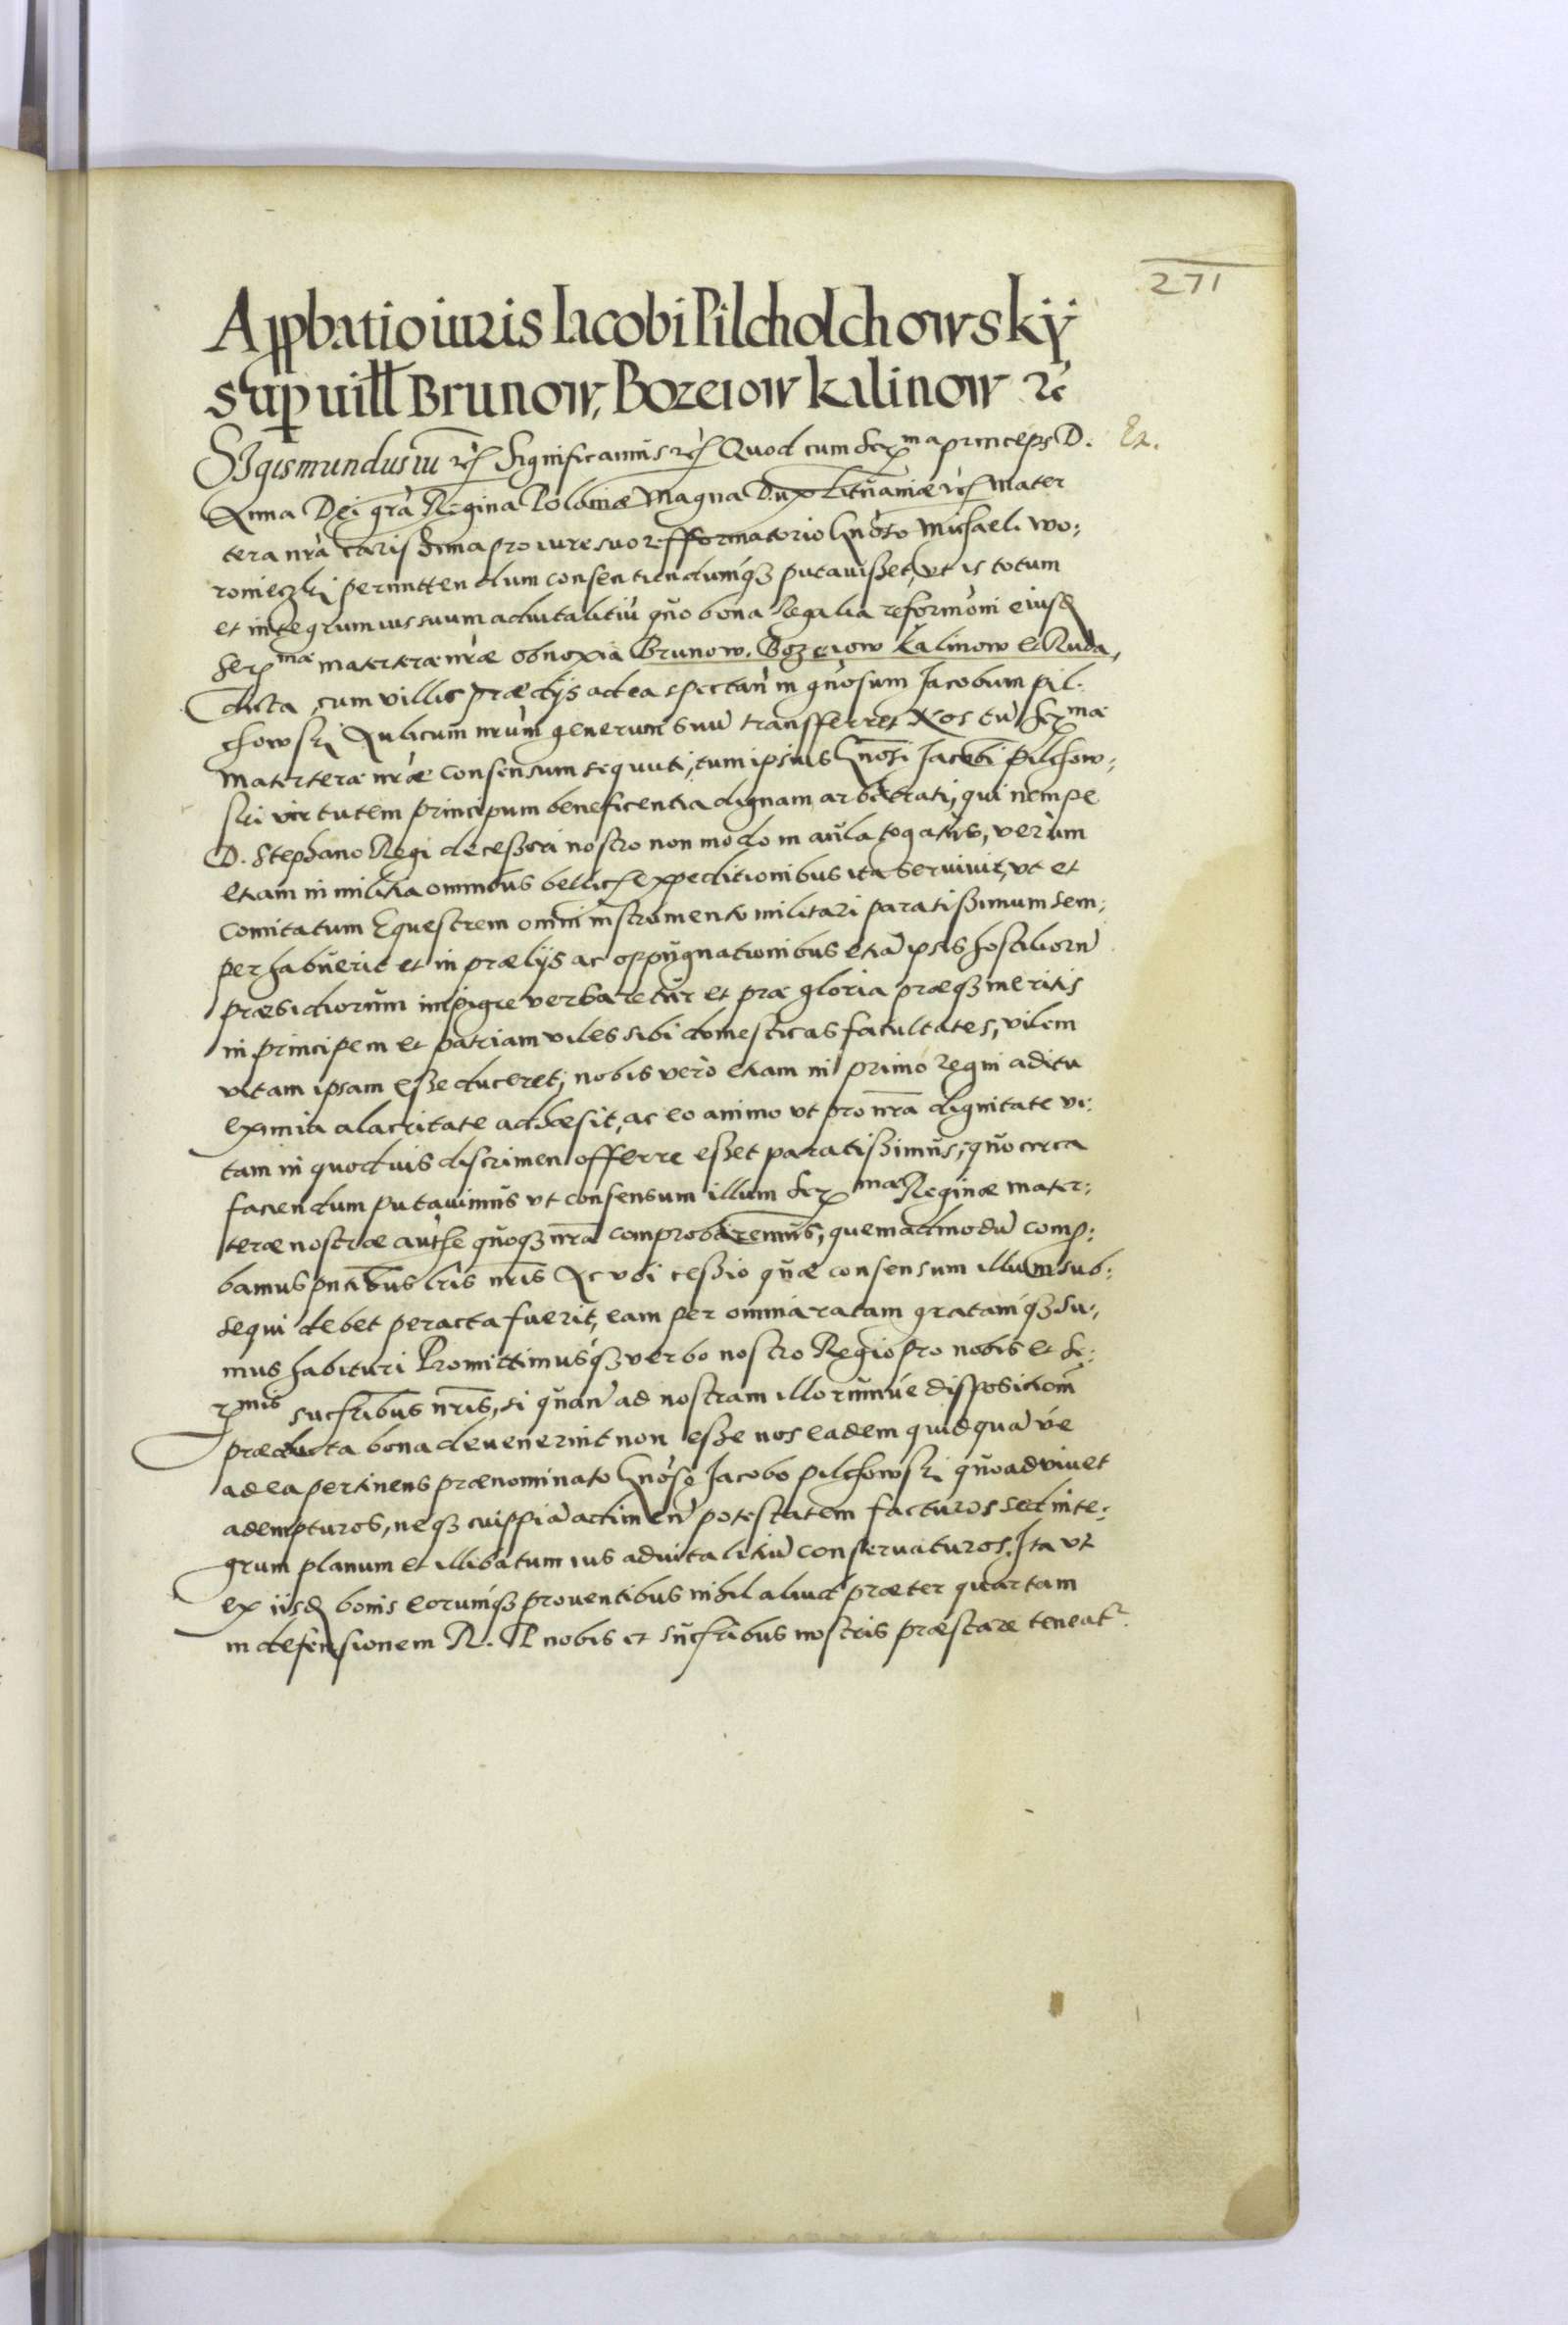 271
Appbatio iuris Iacobi Pilcholchowskÿ
sup uill Brunow, Bozeiow Kalinow ꝛc
SIgismundus iii ꝛc Significamus ꝛc Quod cum Serma princeps D. Ex.
Anna Dei gra Regina Poloniæ Magna Dux Lituaniæ ꝛc Mater
tera nra carissima pro iure suo refformatorio Gnoso Michaeli Wo:
roniezki permittendum consentiendumqȝ putauisset, vt is totum
et integrum ius suum aduitalitiu quo bona Regalia reformoni eiusd
Sermæ materteræ nræ obnoxia Brunow. Bozeiow Kalinow et Ruda,
dicta, cum villis prædijs ad ea spectan in gnosum Jacobum Pil:
chowski Aulicum nrum generum suu transfferret Nos tu Sermæ
materteræ nræ consensum sequuti, tum ipsius Gnosi Jacobi Pilchow:
ski virtutem principum beneficentia dignam arbitrati, qui nempe
D. Stephano Regi decessori nostro non modo in aula togatus, verum
etiam in militia omnibus bellicis expeditionibus ita seruiuit, vt et
comitatum Equestrem omni instrumento militari paratissimum sem:
per habuerit et in prælijs ac oppugnationibus etia ipsis hostilioru
præsidiorum impigre versaretur et præ gloria præqȝ meritis
in principem et patriam viles sibi domesticas facultates, vilem
vitam ipsam esse duceret, nobis vero etiam in primo regni aditu
eximia alacritate adhæsit, ac eo animo vt pro nra dignitate vi:
tam in quoduis discrimen offerre esset paratissimus, quocirca
faciendum putauimus vt consensum illum Sermæ Reginæ mater:
teræ nostræ authe quoqȝ nra comprobaremus, quemadmodu comp:
bamus pntibus lris nris Ac vbi cessio quæ consensum illum sub:
sequi debet peracta fuerit, eam per omnia ratam gratamqȝ su:
mus habituri Promittimusqȝ verbo nostro Regio pro nobis et Se:
rmis sucribus nris, si quan ad nostram illorumue disspositiom
prædicta bona deuenerint non esse nos eadem quidqua ve
ad ea pertinens prænominato Gnoso Jacobo Pilchowski quoad viuet
adempturos, neqȝ cuippia adimen potestatem facturos sed inte:
grum planum et illibatum ius aduitalitiu conseruaturos. Ita vt
ex iisd bonis eorumqȝ prouentibus nihil aliud præter quartam
in defensionem R. P. nobis et sucribus nostris præstare teneatr